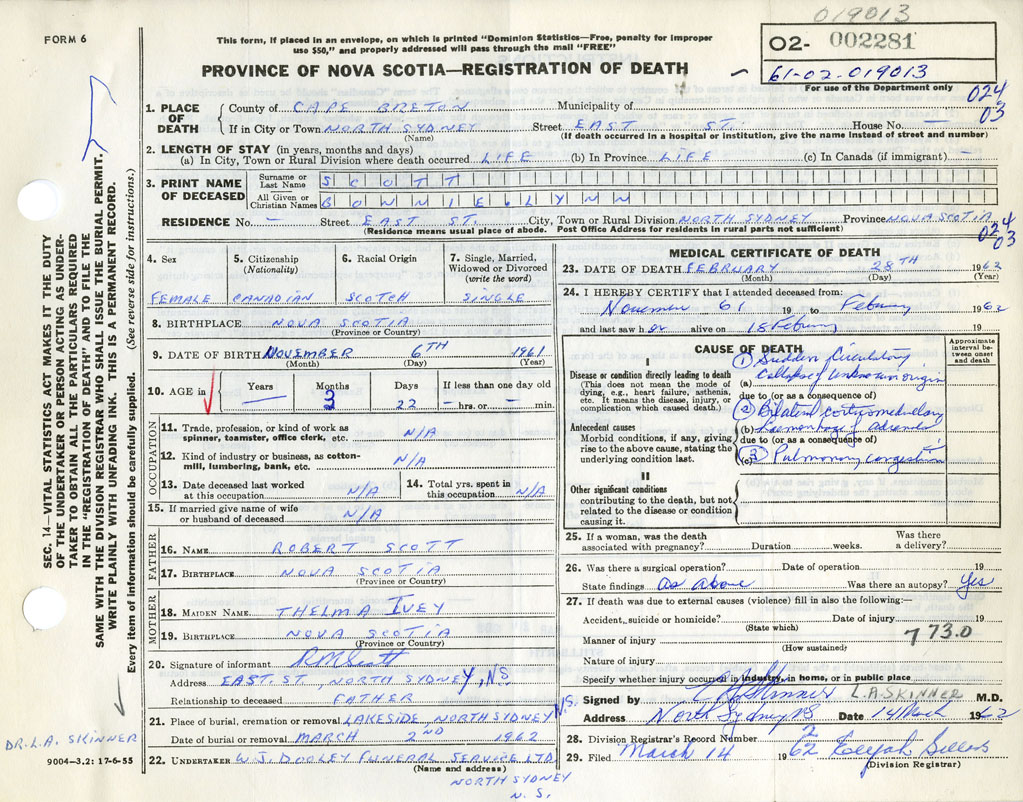 019013
FORM 6
This form, if placed in an envelope, on which is printed "Dominion Statistics—Free, penalty for improper
use $50," and properly addressed will pass through the mail "FREE"
02- 002281
61-02-019013
For use of the Department only
PROVINCE OF NOVA SCOTIA—REGISTRATION OF DEATH
024
03
1. PLACE OF DEATH
County of CAPE BRETON Municipality of
If in City or Town NORTH SYDNEY Street EAST ST. House No. —
(Name) (If death occurred in a hospital or institution, give the name instead of street and number)
2. LENGTH OF STAY (in years, months and days)
(a) In City, Town or Rural Division where death occurred LIFE (b) In Province LIFE (c) In Canada (if immigrant) —
3. PRINT NAME OF DECEASED
Surname or Last Name SCOTT
All Given or Christian Names
RESIDENCE No. — Street EAST ST. City, Town or Rural Division NORTH SYDNEY Province NOVA SCOTIA
(Residence means usual place of abode. Post Office Address for residents in rural parts not sufficient)
024
03
4. Sex
FEMALE
5. Citizenship (Nationality)
CANADIAN
6. Racial Origin
SCOTCH
7. Single, Married, Widowed or Divorced (write the word)
SINGLE
8. BIRTHPLACE NOVA SCOTIA
(Province or Country)
9. DATE OF BIRTH NOVEMBER 6TH 1961
(Month) (Day) (Year)
10. AGE in
Years Months Days If less than one day old
— 3 22 — hrs. or — min.
OCCUPATION
11. Trade, profession, or kind of work as
spinner, teamster, office clerk, etc. N/A
12. Kind of industry or business, as cotton-
mill, lumbering, bank, etc. N/A
13. Date deceased last worked
at this occupation N/A
14. Total yrs. spent in
this occupation N/A
15. If married give name of wife
or husband of deceased N/A
FATHER
16. NAME ROBERT SCOTT
17. BIRTHPLACE NOVA SCOTIA
(Province or Country)
MOTHER
18. MAIDEN NAME THELMA IVEY
19. BIRTHPLACE NOVA SCOTIA
(Province or Country)
20. Signature of informant RM Scott
Address EAST. ST, NORTH SYDNEY, N.S.
Relationship to deceased FATHER
21. Place of burial, cremation or removal LAKESIDE, NORTH SYDNEY N.S.
Date of burial or removal MARCH 2ND 1962
22. UNDERTAKER W.J. DOOLEY FUNERAL SERVICE LTD
(Name and address)
NORTH SYDNEY
N. S.
MEDICAL CERTIFICATE OF DEATH
23. DATE OF DEATH FEBRUARY 28TH 1962
(Month) (Day) (Year)
24. I HEREBY CERTIFY that I attended deceased from:
November 61 19 to February 1962
and last saw her alive on 18 February 19
CAUSE OF DEATH
Approximate interval between onset and death
I
Disease or condition directly leading to death
(This does not mean the mode of
dying, e.g., heart failure, asthenia,
etc. It means the disease, injury, or
complication which caused death.)
(1) Sudden Circulatory
(a) Collapse of unknown origin
due to (or as a consequence of)
Antecedent causes
Morbid conditions, if any, giving
rise to the above cause, stating the
underlying condition last.
(2) Bilateral corticomedullary
(b) haemorrhage of adrenals
due to (or as a consequence of)
(c) (3) Pulmonary congestion
II
Other significant conditions
contributing to the death, but not
related to the disease or condition
causing it.
25. If a woman, was the death
associated with pregnancy? Duration weeks. Was there a delivery?
26. Was there a surgical operation? Date of operation 19
State findings as above Was there an autopsy? Yes
27. If death was due to external causes (violence) fill in also the following:—
Accident, suicide or homicide? Date of injury 19
(State which)
773.0
Manner of injury
(How sustained)
Nature of injury
Specify whether injury occurred in industry, in home, or in public place
Signed by L A Skinner L.A. SKINNER M.D.
Address North Sydney NS Date 14 March 1962
28. Division Registrar's Record Number 2
29. Filed March 14 1962
(Division Registrar)
SEC. 14—VITAL STATISTICS ACT MAKES IT THE DUTY
OF THE UNDERTAKER OR PERSON ACTING AS UNDER-
TAKER TO OBTAIN ALL THE PARTICULARS REQUIRED
IN THE "REGISTRATION OF DEATH" AND TO FILE THE
SAME WITH THE DIVISION REGISTRAR WHO SHALL ISSUE THE BURIAL PERMIT.
WRITE PLAINLY WITH UNFADING INK. THIS IS A PERMANENT RECORD.
Every item of Information should be carefully supplied. (See reverse side for instructions.)
DR. L.A. SKINNER
9004—3.2: 17-6-55